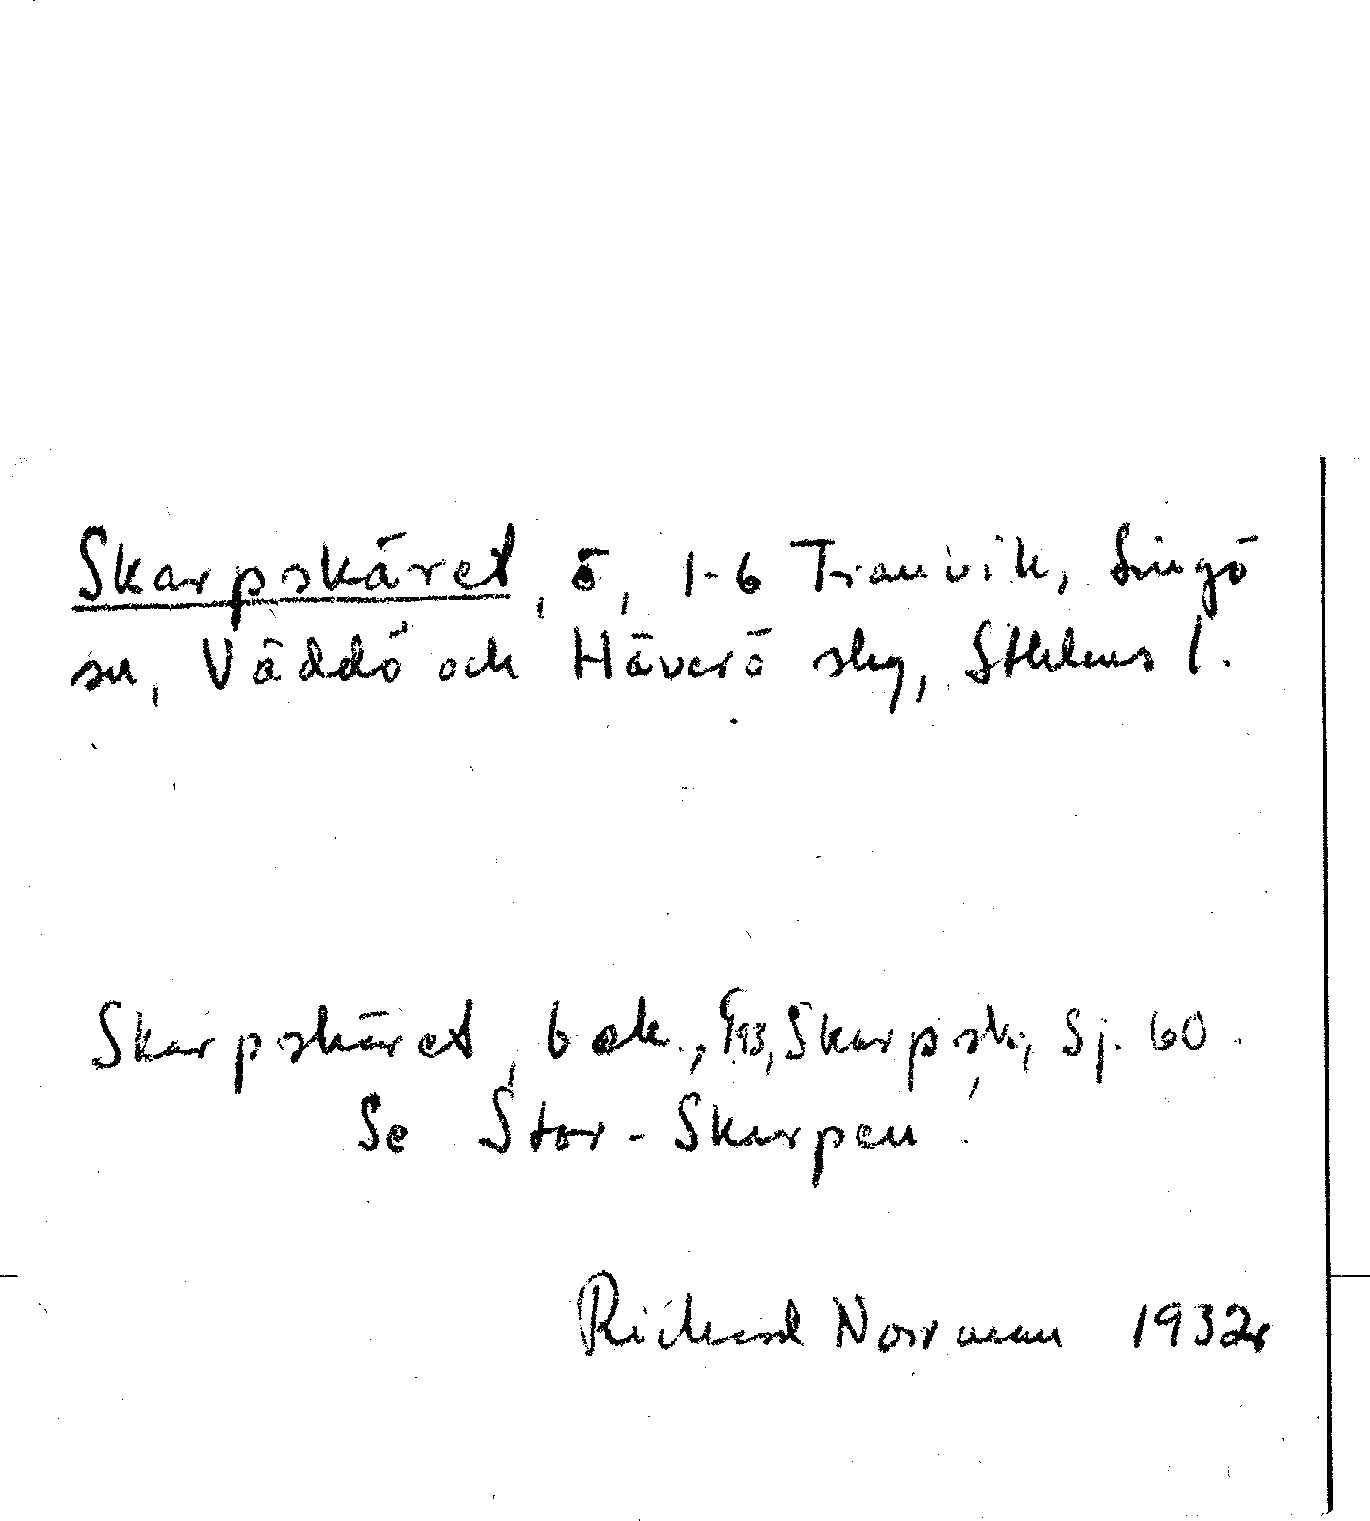 Skarpskäret, ö, 1-6 Tranvik, Singö
sn, Väddö och Häverö skg, Sthlms l.
Skarpskäret, b ek., Skarpsk., Sj. 60.
Se Stor-Skarpen.
Rickard Norrman 1932